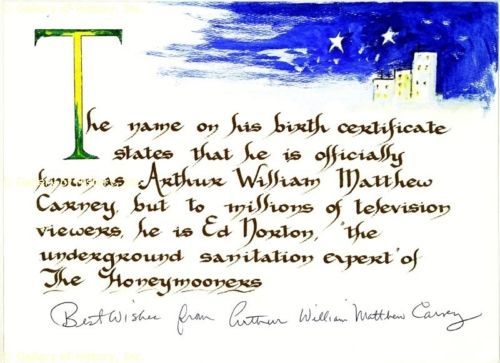 The name on his birth certificate
states that he is officially
known as Arthur William Matthew
Carney, but to millions of television
viewers, he is Ed Norton, "the
underground sanitation expert" of
The Honeymooners
Best Wishes from Arthur William Matthew Carney